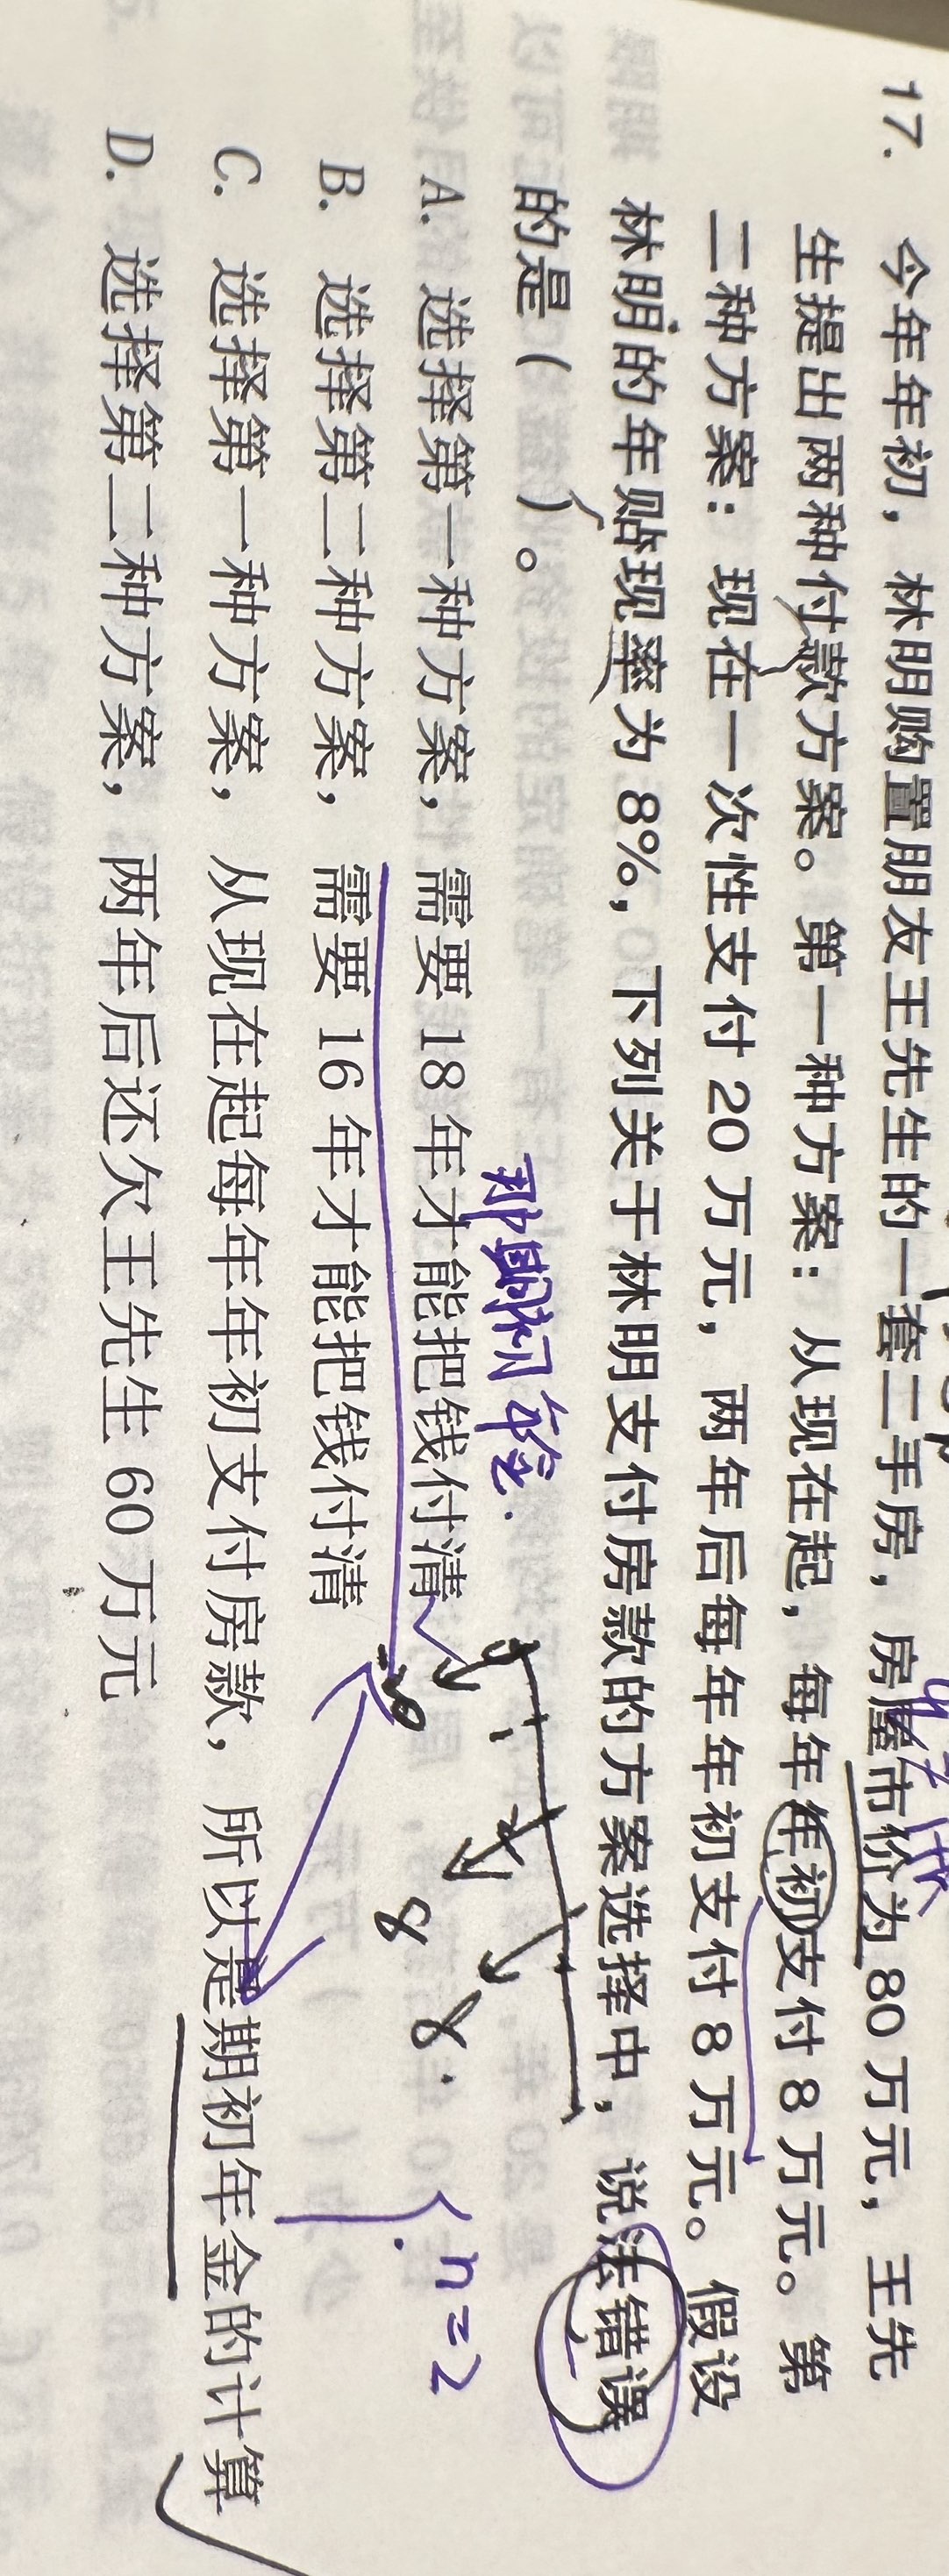 17. 今年年初，林明购置朋友王先生的一套二手房，房屋市价为 80 万元，王先
生提出两种付款方案。第一种方案：从现在起，每年年初支付 8 万元。第
二种方案：现在一次性支付 20 万元，两年后每年年初支付 8 万元。假设
林明的年贴现率为 8%，下列关于林明支付房款的方案选择中，说法错误
的是（ ）。
那期初年金.
A. 选择第一种方案，需要 18 年才能把钱付清
B. 选择第二种方案，需要 16 年才能把钱付清
C. 选择第一种方案，从现在起每年年初支付房款，所以是期初年金的计算
D. 选择第二种方案，两年后还欠王先生 60 万元
8
8.
n=2